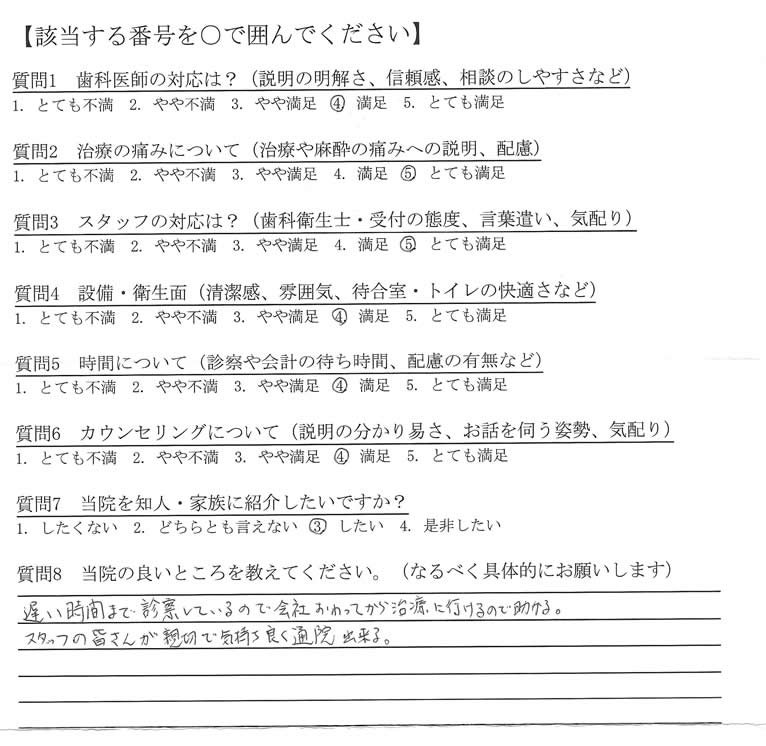 【該当する番号を○で囲んでください】
質問1 歯科医師の対応は？（説明の明解さ、信頼感、相談のしやすさなど）
1. とても不満 2. やや不満 3. やや満足 ④ 満足 5. とても満足
質問2 治療の痛みについて（治療や麻酔の痛みへの説明、配慮）
1. とても不満 2. やや不満 3. やや満足 4. 満足 ⑤ とても満足
質問3 スタッフの対応は？（歯科衛生士・受付の態度、言葉遣い、気配り）
1. とても不満 2. やや不満 3. やや満足 4. 満足 ⑤ とても満足
質問4 設備・衛生面（清潔感、雰囲気、待合室・トイレの快適さなど）
1. とても不満 2. やや不満 3. やや満足 ④ 満足 5. とても満足
質問5 時間について（診察や会計の待ち時間、配慮の有無など）
1. とても不満 2. やや不満 3. やや満足 ④ 満足 5. とても満足
質問6 カウンセリングについて（説明の分かり易さ、お話を伺う姿勢、気配り）
1. とても不満 2. やや不満 3. やや満足 ④ 満足 5. とても満足
質問7 当院を知人・家族に紹介したいですか？
1. したくない 2. どちらとも言えない ③ したい 4. 是非したい
質問8 当院の良いところを教えてください。（なるべく具体的にお願いします）
遅い時間まで診察しているので会社おわってから治療に行けるので助ける。
スタッフの皆さんが親切で気持ち良く通院出来る。